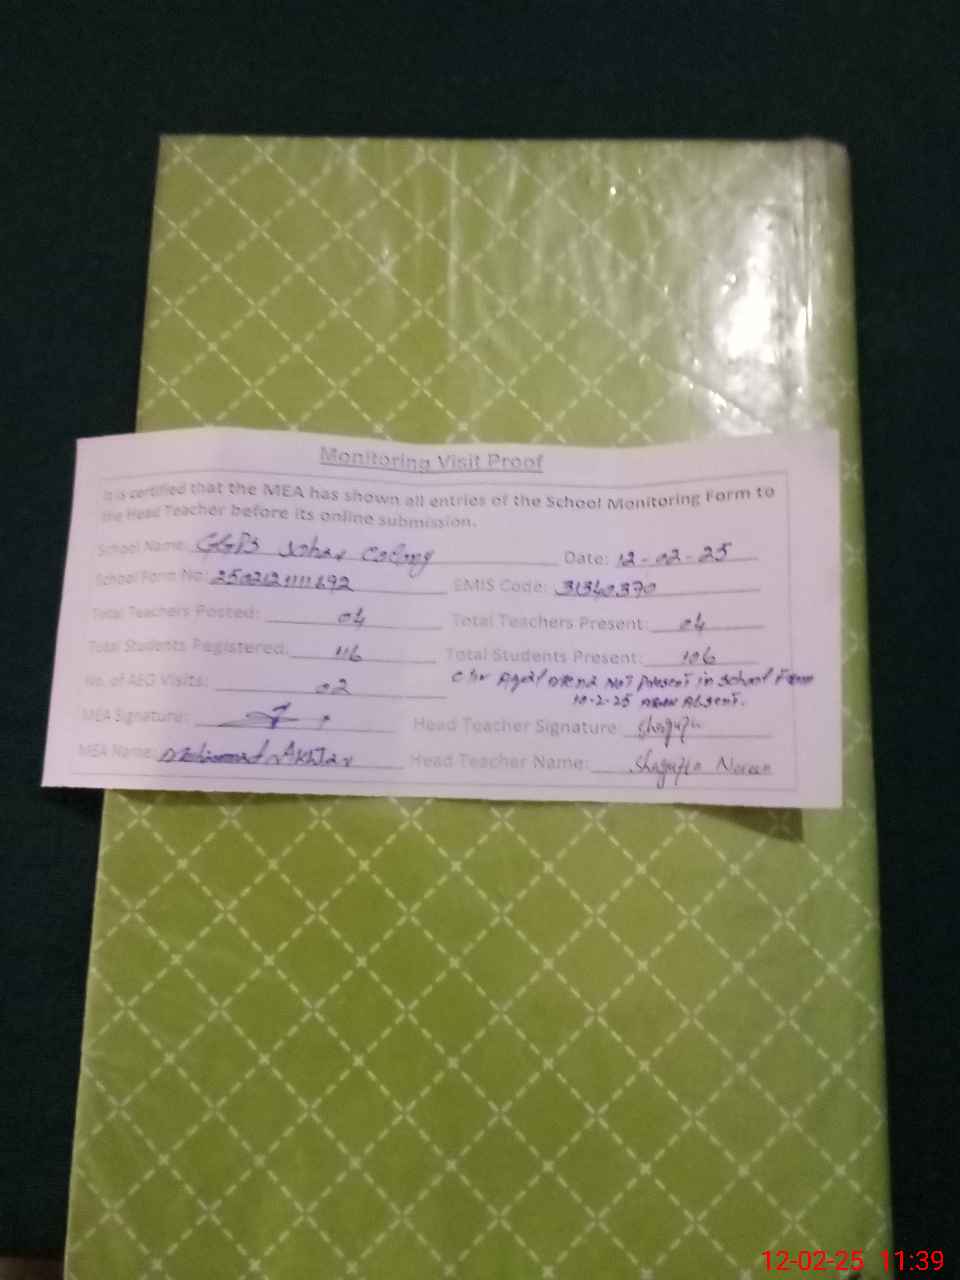 Monitoring Visit Proof
It is certified that the MEA has shown all entries of the School Monitoring Form to
the Head Teacher before its online submission.
School Name: Colony Date: 12-02-25
School Form No: EMIS Code: 31340370
Total Teachers Posted: 04 Total Teachers Present: 04
Total Students Registered: 116 Total Students Present: 106
No. of AEO Visits: 02 not present in school from
10-2-25 Absent.
MEA Signature: Head Teacher Signature:
MEA Name: Akhtar Head Teacher Name: Noreen
12-02-25 11:39